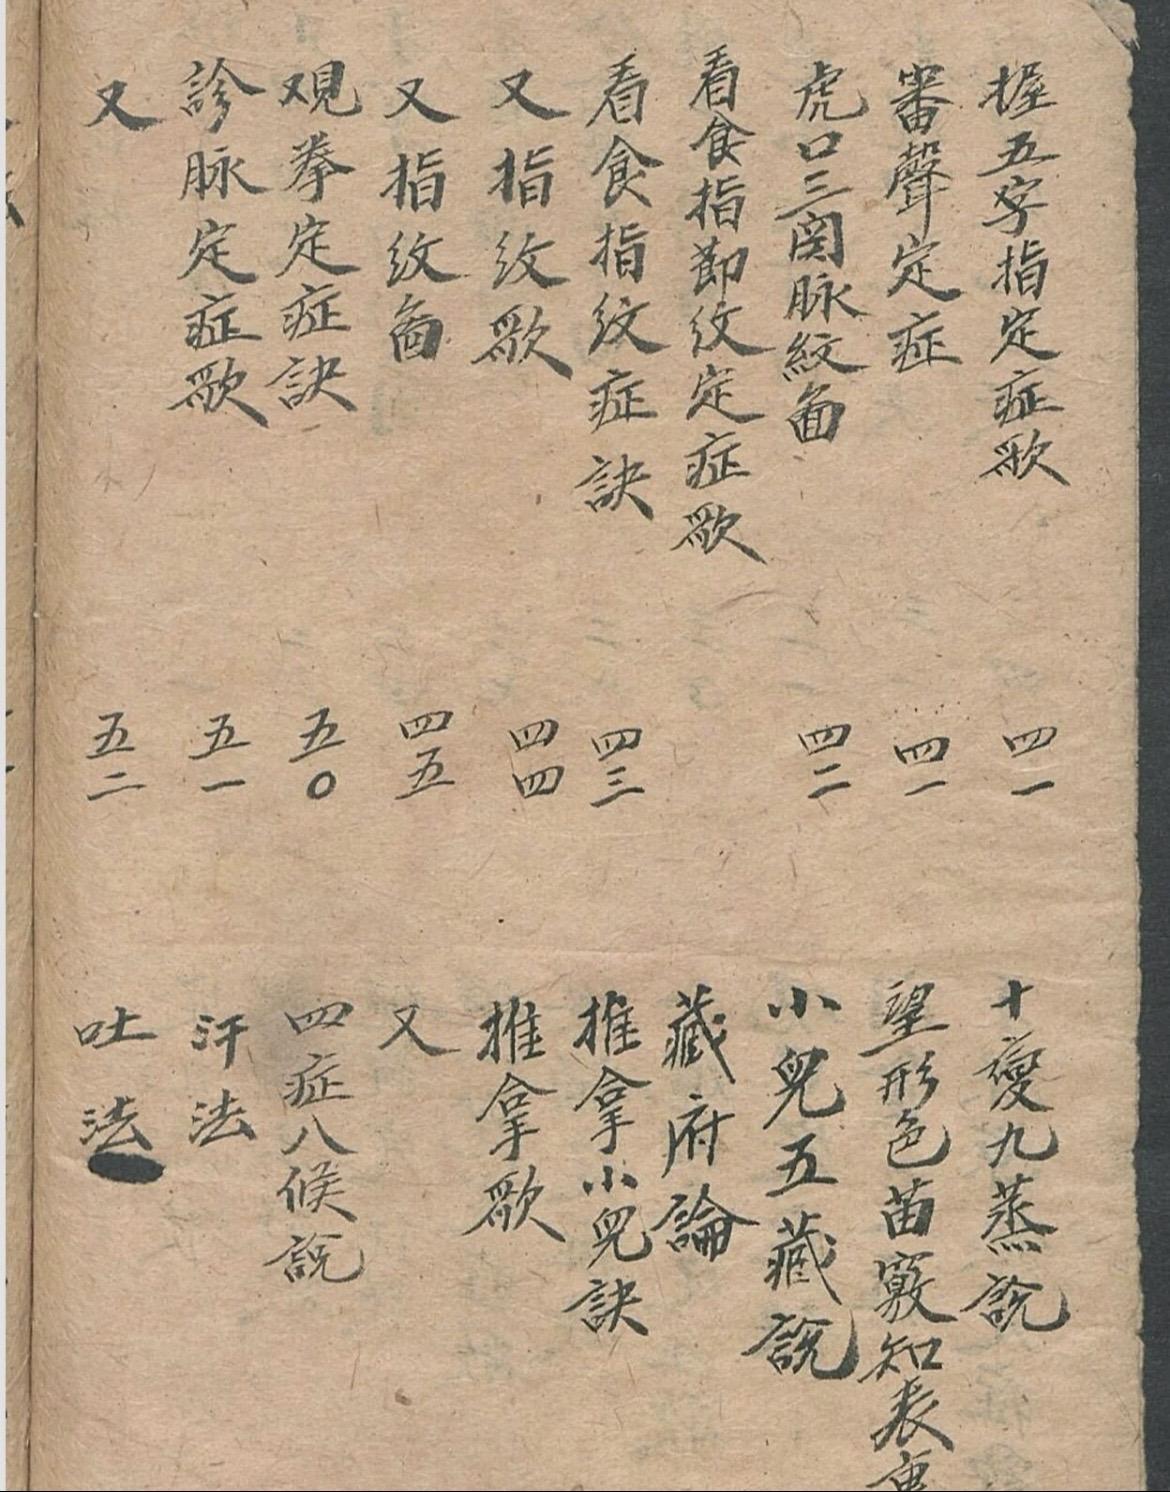 握五字指定症歌 四一
審聲定症 四一
虎口三関脉紋啚 四二
看食指節紋定症歌
看食指紋症訣 四三
又指紋歌 四四
又指紋啚 四五
观拳定症訣 五〇
診脉定症歌 五一
又 五二
十變九蒸說
望形色苗竅知表
小兒五藏說
藏府論
推拿小兒訣
推拿歌
又
四症八候說
汗法
吐法